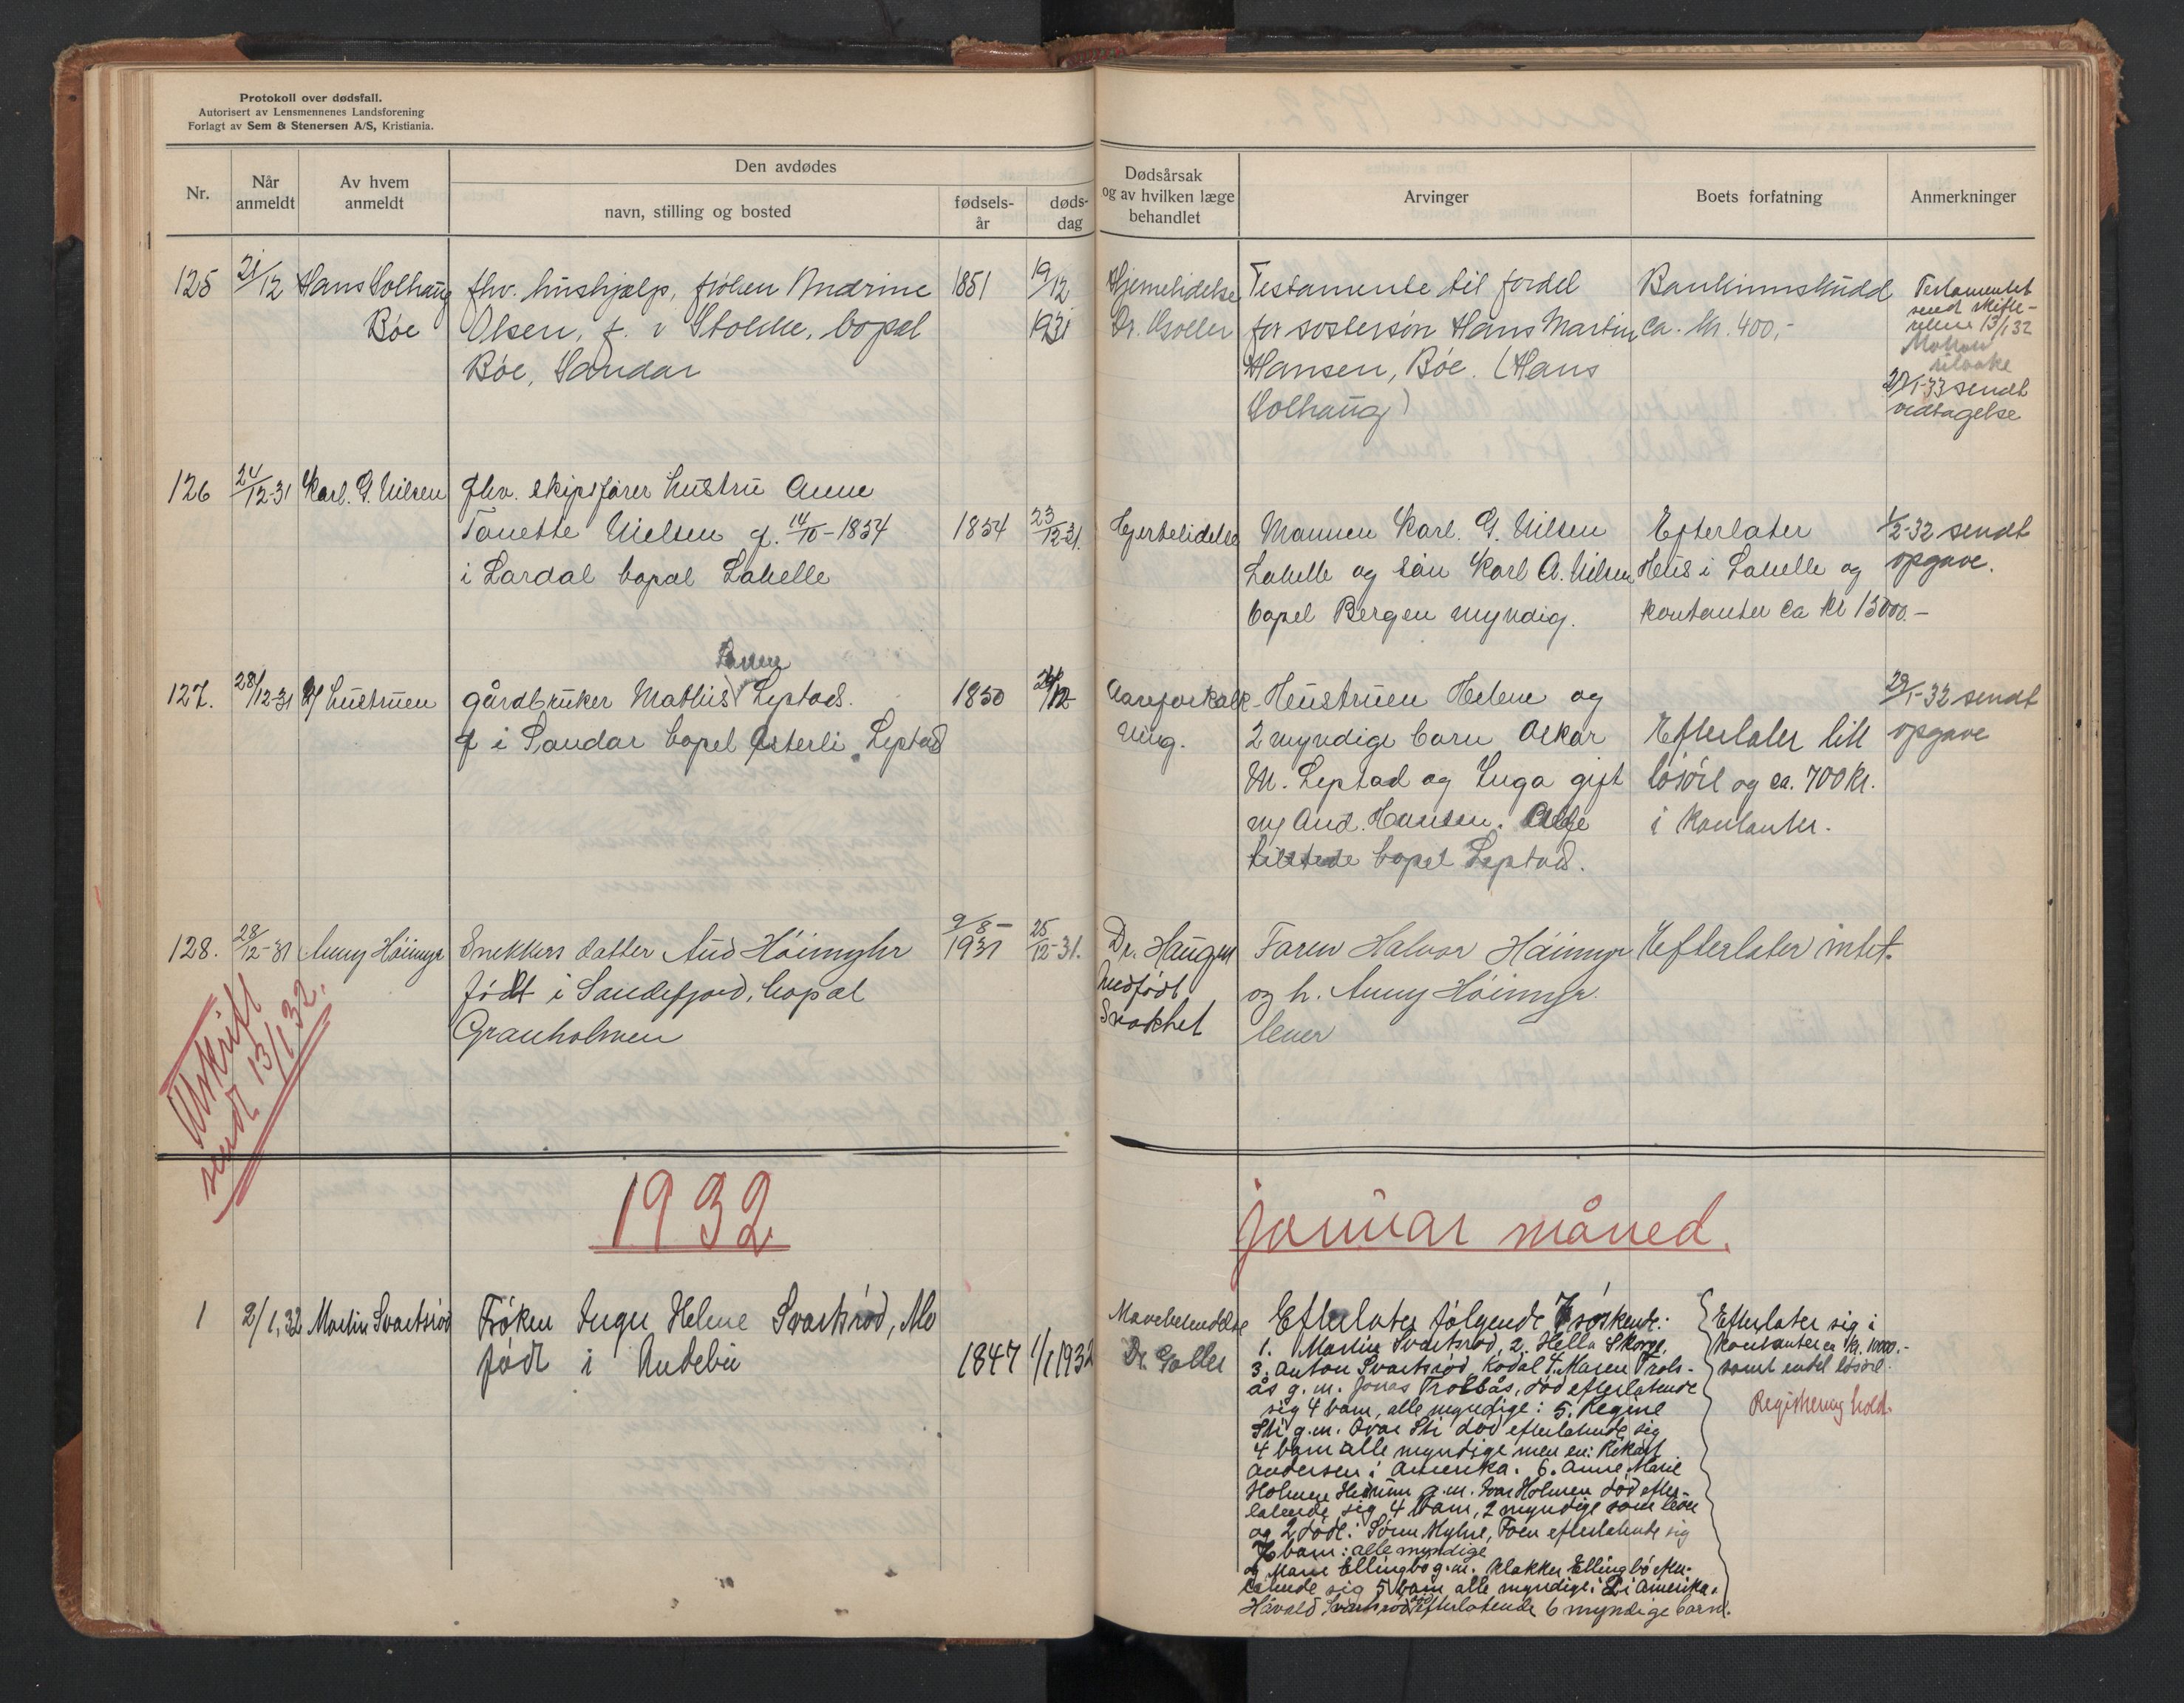 Protokoll over dødsfall.
Autorisert av Lensmennenes Landsforening
Forlagt av Sem & Stenersen A/S, Kristiania.
Nr.
Når anmeldt
Av hvem anmeldt
Den avdødes
navn, stilling og bosted
fødsels-år
døds-dag
Dødsårsak og av hvilken læge behandlet
Arvinger
Boets forfatning
Anmerkninger
125 21/12 Hans Solhaug fhv. hushjælp, frøken Andrine 1851 19/12 Hjernelidelse Testamente til fordel Bankinnskudd Testamentet
Bøe Olsen, f. i Stokke, bopel 1931 Dr. Holler for søstersøn Hans Martin ca. kr. 400,- sendt skifte-
Bøe, Sandar Hansen, Bøe. (Hans retten 13/1 32
Solhaug)
tilbake
27/1-33 sendt
vedtagelse
126 24/12-31 Karl. G. Nilsen fhv. skipsfører hustru Anne
Tanette Nielsen f. 14/10-1854 1854 23/12-31. Hjertelidelse Mannen Karl. G. Nilsen Efterlater 1/2-32 sendt
i Lardal bopel Lahelle Lahelle og søn Karl A. Nilsen Hus i Lahelle og opgave.
bopel Bergen myndig. kontanter ca kr 13000.-
127. 28/12-31 v/ hustruen gårdbruker Mathis Leptad. 1850 24/12 Aareforkalk- Hustruen Helene og 29/1-32 sendt
f i Sandar bopel Østerli Leptad ning. 2 myndige barn Oskar Efterlater litt opgave
M. Leptad og Inga gift løsøre og ca. 700 kr.
m/ And. Hansen. Alle i kontanter.
tilstede bopel Leptad.
128. 28/12-31 Anny Høimyr Snekkers datter Aud Høimyhr 9/8-1931 25/12-31. Dr. Haugen Faren Halvor Høimyr Efterlater intet.
født i Sandefjord, bopel Medfødt og h. Anny Høimyr
Granholmen Svakhet lever
Utskrift
sendt 13/1 32.
1932
januar måned.
1 2/1,32 Martin Svartsrød Frøken Inger Helene Svartsrød, Mo 1847 1/1 1932 Mavebetendelse Efterlater følgende 7 søskende: Efterlater sig i
født i Andebu Dr. Holler 1. Martin Svartsrød, 2. Hella Skorge, kontanter ca kr. 1000.-
3. Anton Svartsrød, Kodal 4. Maren Trols- samt endel løsøre.
ås g.m. Jonas Trolsås, død efterlatende
sig 4 barn, alle myndige: 5. Regine Registrering hold.
Sti g.m. Ivar Sti død efterlatende sig
4 barn alle myndige men en: Rikart
Andersen i Amerika. 6. Anne Marie
Holmen Hedrum g.m. Ivar Holmen død efter-
latende sig 4 barn, 2 myndige som lever
og 2 døde: Søren Myhre, Foen efterlatende sig
7 barn: alle myndige
og Maren Ellingbø g.m. Klakken Ellingbø efter-
latende sig 5 barn alle myndige: 2 i Amerika.
Håvald Svartsrød efterlatende 6 myndige barn.